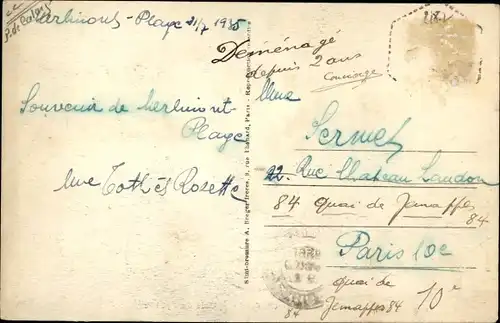 P. de Calais
Merlimont - Plage 21/7 1935
Souvenir de Merlimont
Plage
Mme Toth et Rosette
Simi-bromure A. Breger frères, 9, rue Thénard, Paris
Déménagé
depuis 2 ans
Concierge
Mme
Sermet
22 Rue Chateau Landon
84 quai de Jemappes
84
Paris 10e
quai de
Jemappes 84
10e
84